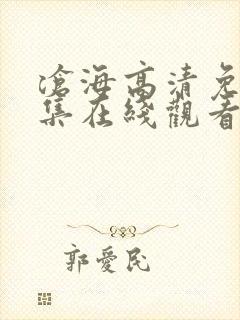 滄海高清免
集在綫觀看
郭愛民